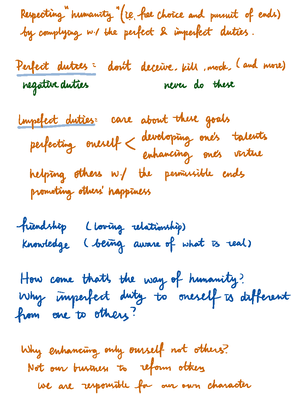 Respecting "humanity" (i.e. free choice and pursuit of ends)
by complying w/ the perfect & imperfect duties.
Perfect duties: don't deceive, kill, mock, (and more)
negative duties never do these
Imperfect duties: care about these goals
perfecting oneself < developing one's talents
enhancing one's virtue
helping others w/ the permissible ends
promoting others' happiness
friendship (loving relationship)
Knowledge (being aware of what is real)
How come thats the way of humanity?
Why imperfect duty to oneself is different
from one to others?
Why enhancing only ourself not others?
Not our business to reform others
we are responsible for our own character